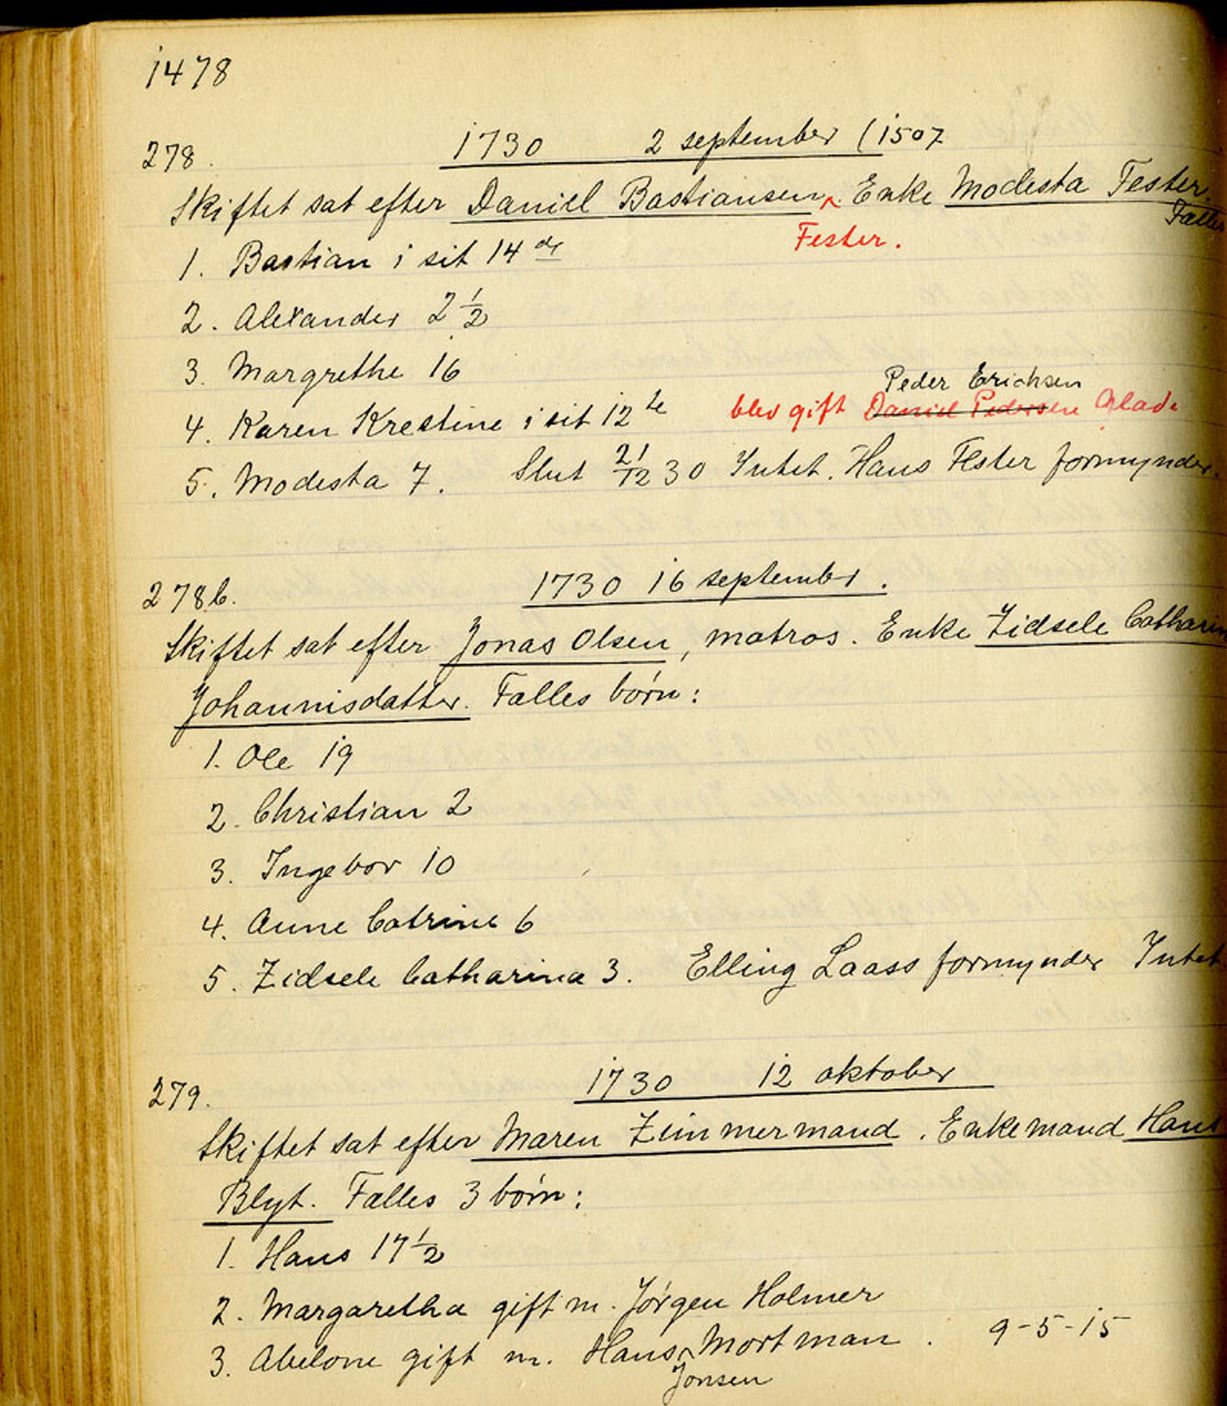 1478
278. 1730 2 september (1507
Skiftet sat efter Daniel Bastiansen ^ Enke Modesta Fester.
Fester. Fælles
1. Bastian i sit 14 de
2. Alexander 2 1/2
3. Margrethe 16
Peder Erichsen
4. Karen Krestine i sit 12 te blev gift Daniel Pedersen Glad.
5. Modesta 7. Slut 21/12 30 Intet. Hans Fester formynder.
278b. 1730 16 september.
Skiftet sat efter Jonas Olsen, matros. Enke Zidsele Catharin
Johannisdatter. Fælles børn:
1. Ole 19
2. Christian 2
3. Ingebor 10
4. Anne Catrine 6
5. Zidsele Catharina 3. Elling Laass formynder Intet
279. 1730 12 oktober
Skiftet sat efter Maren Zimmermand. Enkemand Hans
Blyt. Fælles 3 børn:
1. Hans 17 1/2
2. Margaretha gift m. Jørgen Holmer
3. Abelone gift m. Hans ^ Mortman. 9-5-15
Jonsen